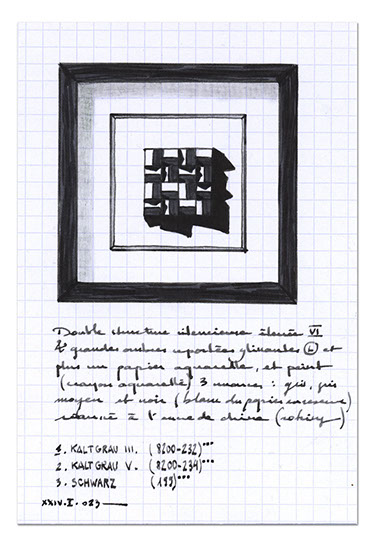 Double structure silencieuse élevée VI
2 grandes ombres reportées glissantes (L) et
plus un papier aquarelle, et peint
(crayons aquarelle) 3 nuances : gris, gris
moyen et noir (blanc du papier
à l'encre de chine (rotring)
1. KALTGRAU III. (8200-232)"""
2. KALTGRAU V. (8200-234)"""
3. SCHWARZ (199)"""
XXIV.I.023